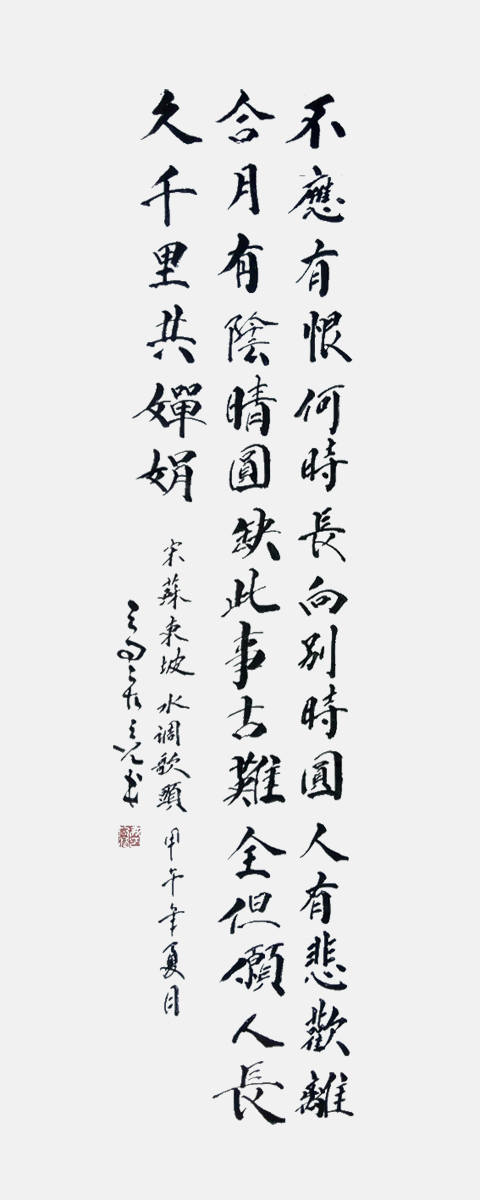 不應有恨何時長向別時圓人有悲歡離
合月有陰晴圓缺此事古難全但願人長
久千里共嬋娟
宋蘇東坡水调歌頭 甲午年夏月